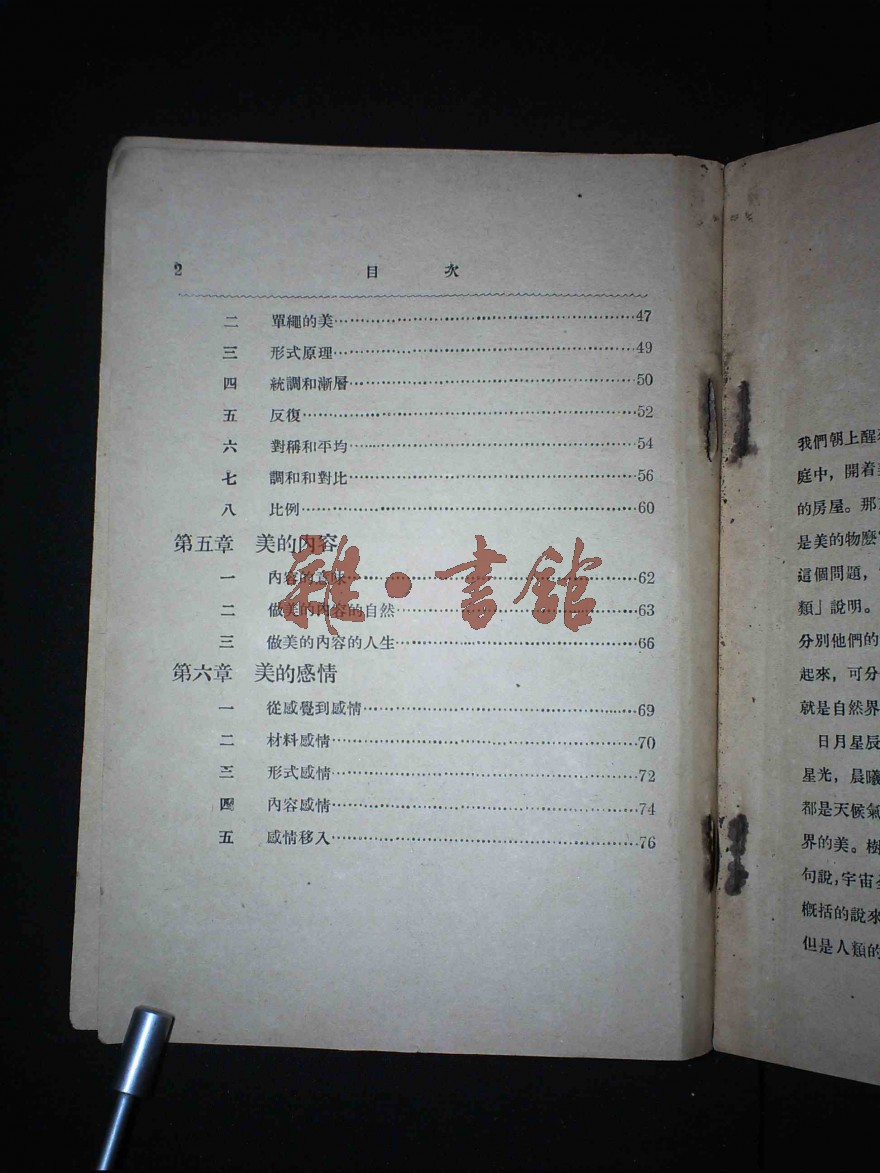 2 目 次
二 單繩的美 47
三 形式原理 49
四 統調和漸層 50
五 反復 52
六 對稱和平均 54
七 調和和對比 56
八 比例 60
第五章 美的內容
一 內容的意味 62
二 做美的內容的自然 63
三 做美的內容的人生 66
第六章 美的感情
一 從感覺到感情 69
二 材料感情 70
三 形式感情 72
四 內容感情 74
五 感情移入 76
雜·書館
我們朝上醒
庭中，開着
的房屋。那
是美的物麼
這個問題，
類」說明。
分別他們的
起來，可分
就是自然界
日月星辰
星光，晨曦
都是天候氣
界的美。樹
句說，宇宙
概括的說來
但是人類的